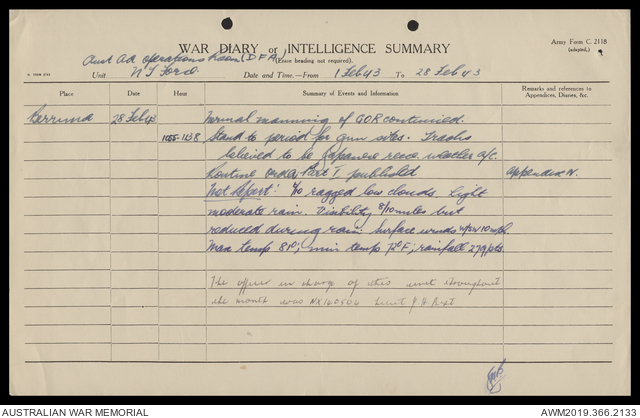 WAR DIARY or INTELLIGENCE SUMMARY
Army Form C. 2118
(adapted.)
(Erase heading not required).
Aust AA operations Room (DFA)
Unit N T Force Date and Time.—From 1 Feb 43 To 28 Feb 43
Place Date Hour Summary of Events and Information Remarks and references to Appendices, Diaries, &c.
Berrima 28 Feb 43 Normal manning of GOR continued.
1055-1138 Stand to period for gun sites. Tracks
believed to be Japanese recce. weather a/c.
Routine order Part I published Appendix N.
Met Report: ragged low clouds. Light
moderate rain. Visibility 8/10 miles but
reduced during rain. Surface winds 10 mph.
Max temp 81°; min temp 72°F; rainfall pts.
The officer in charge of this unit throughout
the month was NX Lieut
AUSTRALIAN WAR MEMORIAL
AWM2019.366.2133